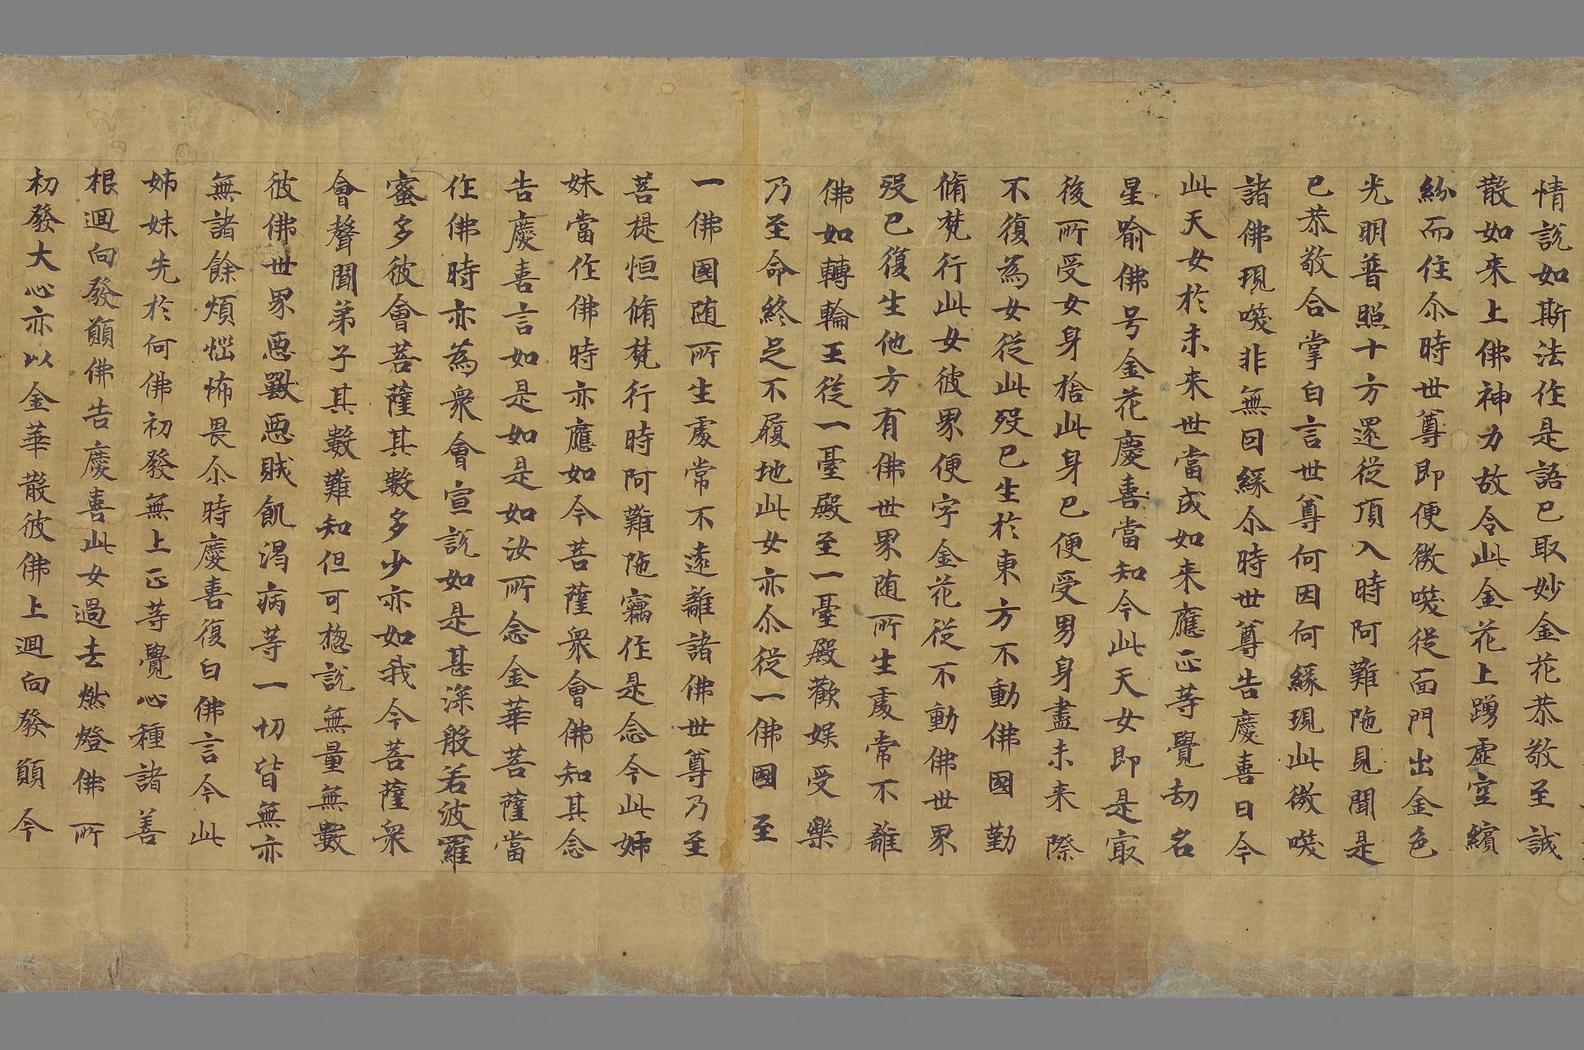 情說如斯法作是語已取妙金花恭敬至誠
散如来上佛神力故令此金花上踴虛空繽
紛而住尒時世尊即便微𠯗從面門出金色
光明普照十方還從頂入時阿難陁見聞是
已恭敬合掌白言世尊何因何緣現此微𠯗
諸佛現𠯗非無因緣尒時世尊告慶喜曰今
此天女於未来世當成如来應正等覺劫名
星喻佛号金花慶喜當知今此天女即是㝡
後所受女身捨此身已便受男身盡未来際
不復為女從此殁已生於東方不動佛國勤
脩梵行此女彼界便字金花從不動佛世界
殁已復生他方有佛世界随所生處常不離
佛如轉輪王從一臺殿至一臺殿歡娱受樂
乃至命終足不履地此女亦尒從一佛國至
一佛國随所生處常不遠離諸佛世尊乃至
菩提恒脩梵行時阿難陁竊作是念今此姉
妹當作佛時亦應如今菩薩衆會佛知其念
告慶喜言如是如是如汝所念金華菩薩當
作佛時亦為衆會宣說如是甚深般若波羅
蜜多彼會菩薩其數多少亦如我今菩薩衆
會聲聞弟子其數難知但可惣說無量無數
彼佛世界惡獸惡賊飢渴病等一切皆無亦
無諸餘煩惱怖畏尒時慶喜復白佛言今此
姉妹先於何佛初發無上正等覺心種諸善
根迴向發願佛告慶喜此女過去燃燈佛所
初發大心亦以金華散彼佛上迴向發願今